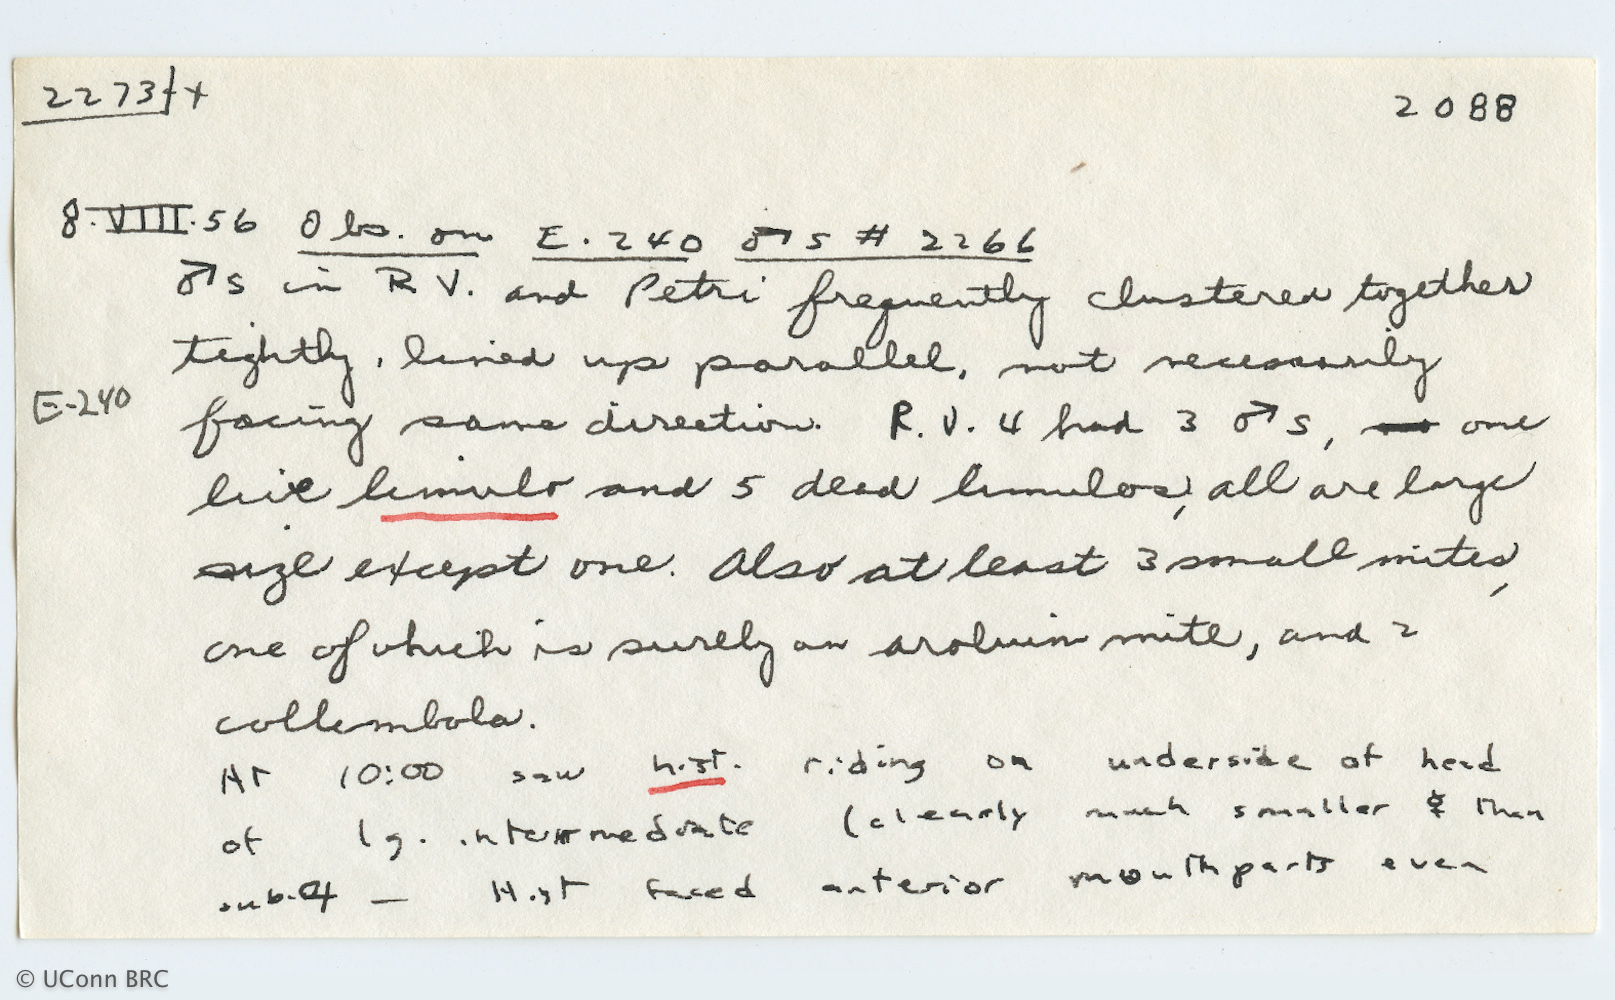 2273ft
2088
8.VIII.56 Obs. on E.240 ♂s # 2266
♂s in R V. and Petri frequently clustered together
tightly, lined up parallel, not necessarily
E-240
facing same direction. R.V. 4 had 3 ♂s, one
live limulo and 5 dead limulos, all are large
size except one. Also at least 3 small mites,
one of which is surely an mite, and 2
collembola.
At 10:00 saw hist. riding on underside of head
of lg. intermediate (clearly much smaller & than
sub. ♀ — Hist faced anterior mouthparts even
© UConn BRC